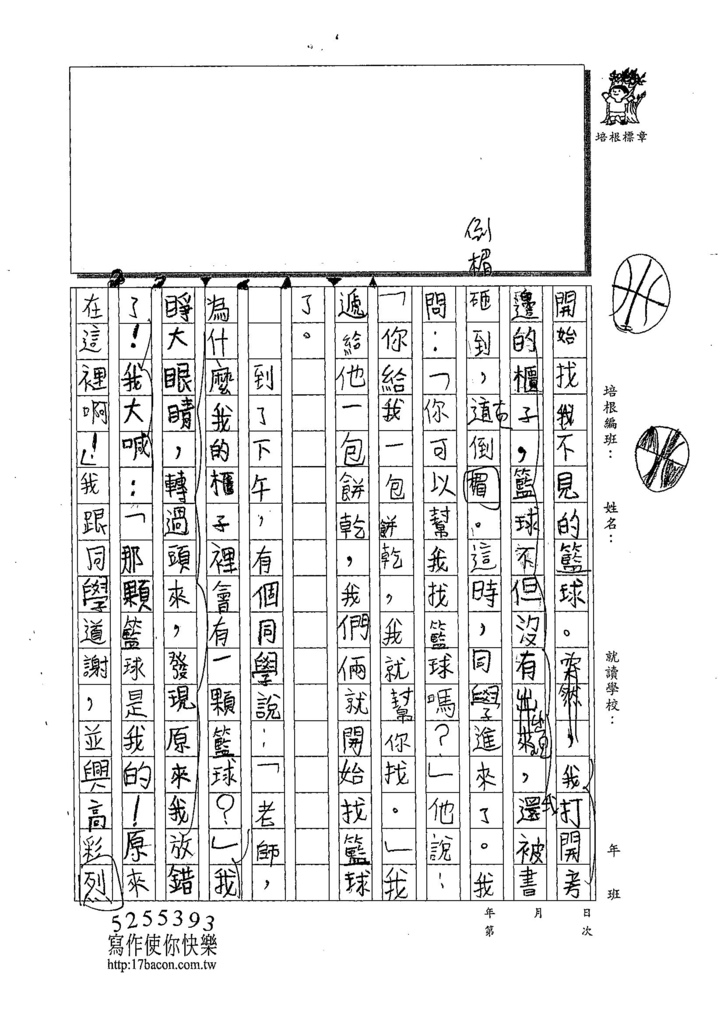 培根標章
培根編班：
姓名：
就讀學校：
年
班
日
月
年
次
第
倒楣
開始找我不見的籃球。突然，我打開旁
邊的櫃子，籃球不但沒有出現，我還被書
砸到，真倒楣。這時，同學進來了。我
問：「你可以幫我找籃球嗎？」他說：
「你給我一包餅乾，我就幫你找。」我
遞給他一包餅乾，我們倆就開始找籃球
了。
到了下午，有個同學說：「老師，
為什麼我的櫃子裡會有一顆籃球？」我
睜大眼睛，轉過頭來，發現原來我放錯
了！我大喊：「那顆籃球是我的！原來
在這裡啊！」我跟同學道謝，並興高彩
烈
5255393
寫作使你快樂
http:17bacon.com.tw